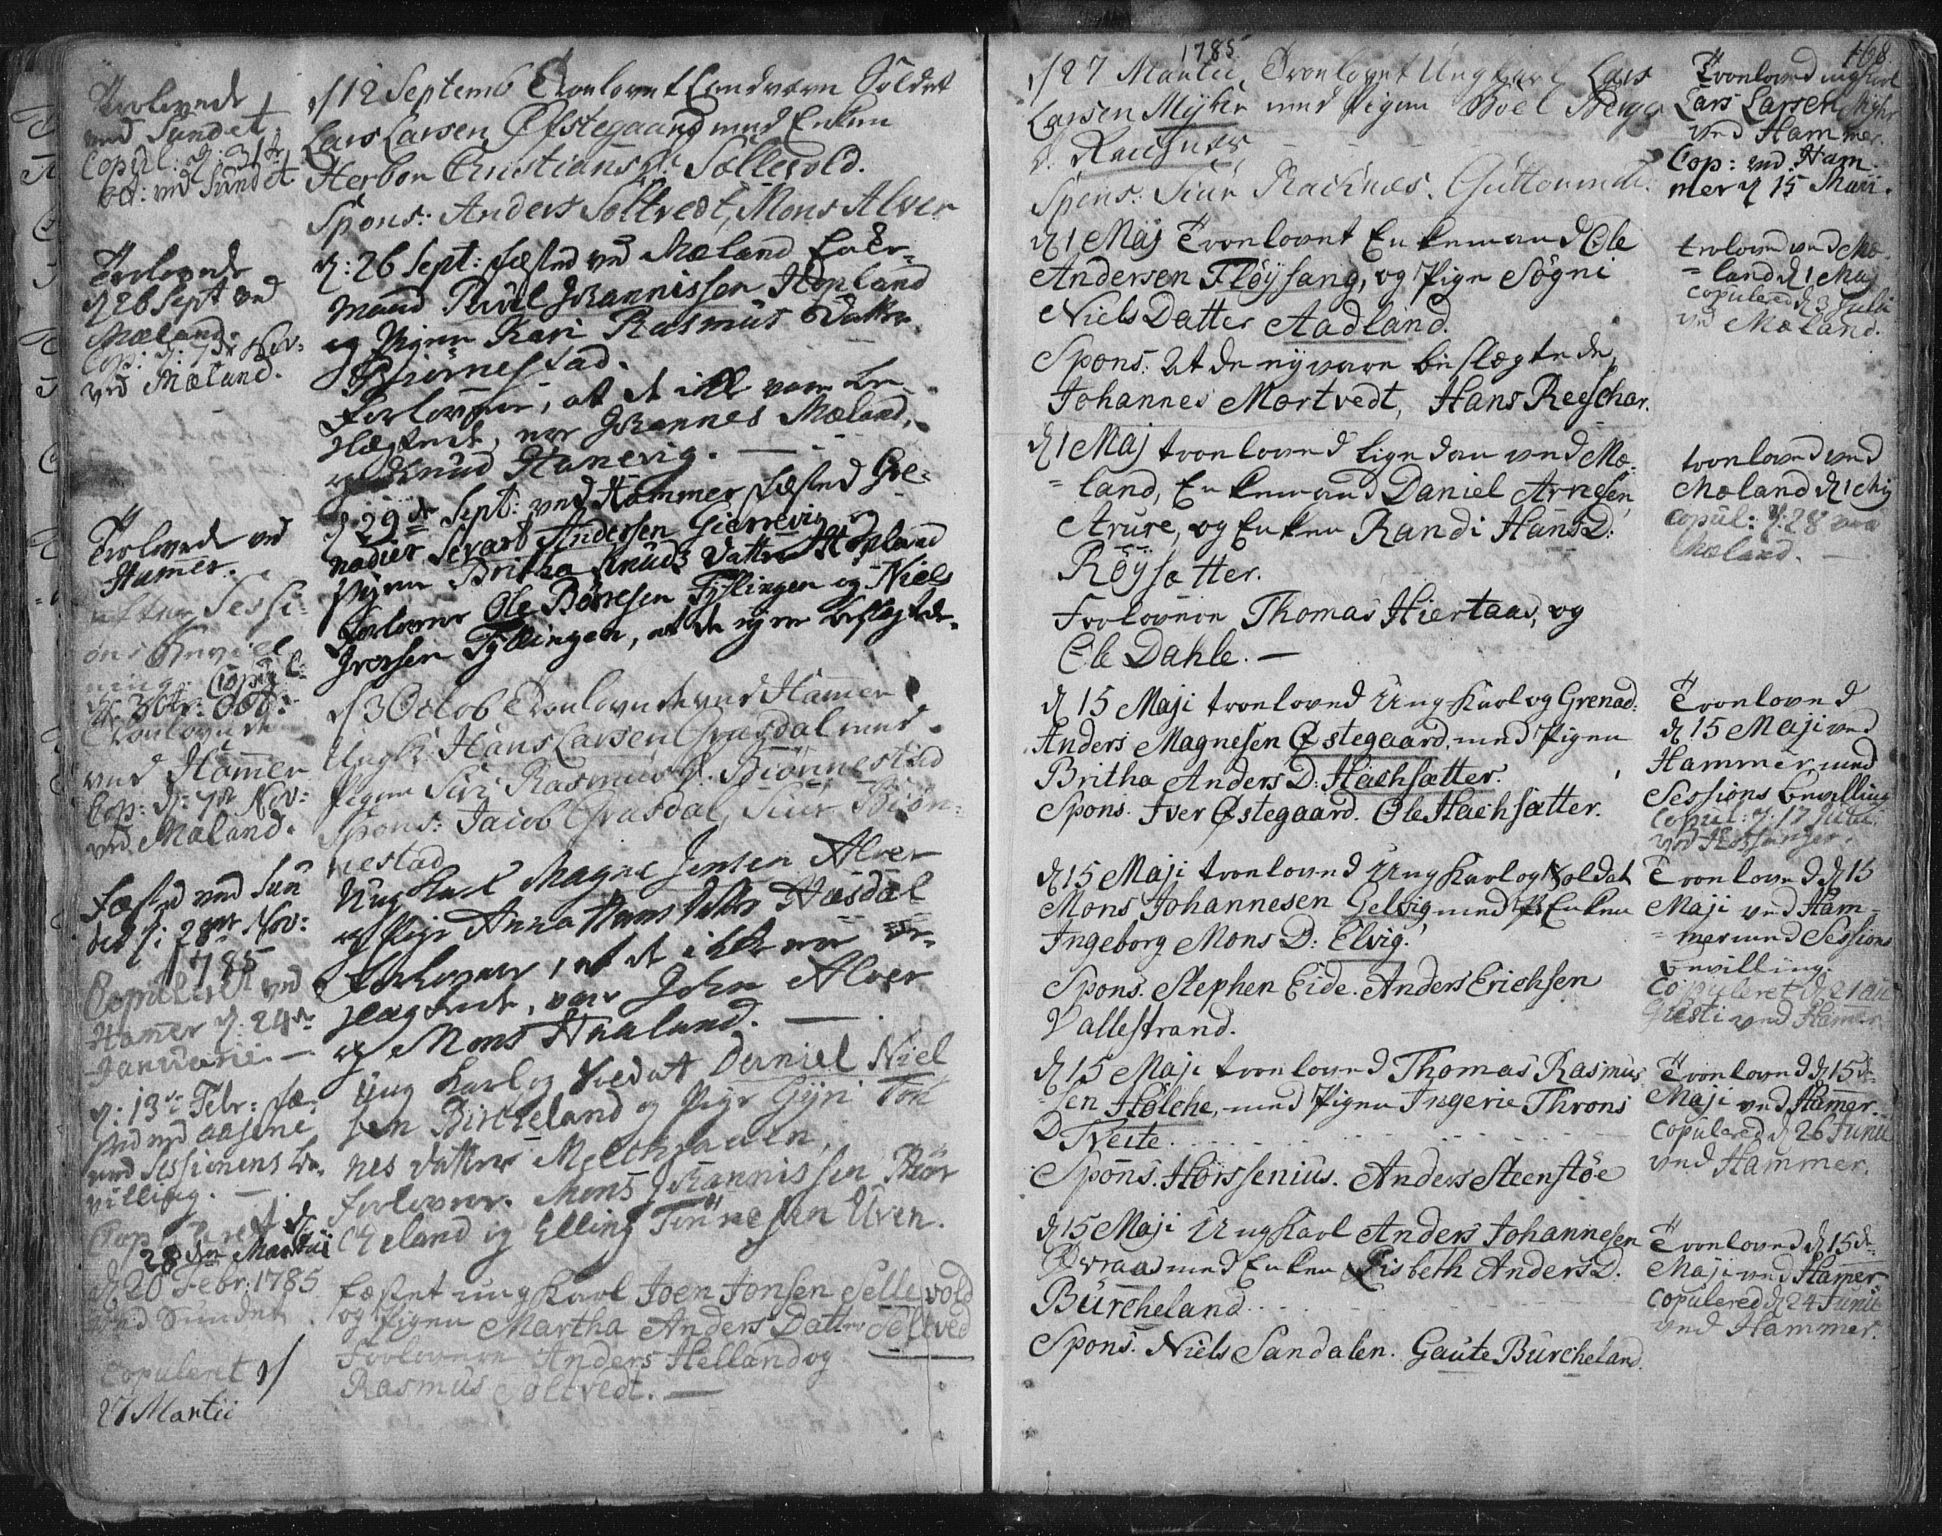 Trolovede
ved Sundet.
Copul: d. 31te
Oct: ved Sundet
d 12 Septemb Troelovet Landværn Soldat
Lars Larsen Øfstegaard med Enken
Herbor Christians D: Sællevold.
Spons: Anders Soltvedt, Mons Alver
Trolovede
d 26 Sept ved
Mæland.
Cop: d: 7de Nov:
ved Mæland.
d: 26 Sept: fæsted ved Mæland Enke-
mand Povel Johannissen Hopland
og Pigen Kari Rasmus Datter
Biørnestad.
Forlovere, at de ikke vare be-
slægtede, var Johannes Mæland,
og Knud Hanevig. —
Trolovede ved
Hamer.
efter Sessi-
ons Bevil
ning. Copul
d. 30te Oct:
d 29de Sept: ved Hammer fæsted Gre-
nadier Sivart Andersen Gierrevig og
Pigen Britha Knuds Datter Hopland
Forlovere Ole Børresen Tyslingen og Niels
Iversen Tyllingen, at de ey ere beslægtede.
Troelovede
ved Hamer
Cop: d: 7de Nov:
ved Mæland.
d 3 Octob Troelovede ved Hamer
Ungk: Hans Larsen Grasdal med
Pigen Siri Rasmus D. Biønnestad
Spons: Jacob Grasdal, Siur Biøn-
nestad
Fæsted ved Sun
det d: 28de Nov:
1785
Copuleret ved
Hamer d: 24de
Januarii. —
Ung Karl Magne Jensen Alver
og Pige Anna Hans Datter Hæsdal
Forlovere, at de ikke var be-
slægtede, var John Alver
og Mons Haaland. —
d: 13de Febr: fæ-
sted ved Aasene
med Sessionens be-
villing. —
Copuleret d
28de Martii
Ung Karl og Soldat Daniel Niel
sen Bircheland og Pige Gyri Tøn
nes Datter Meltkraaen,
forlovere. Mons Johannissen Biør
cheland og Elling Tønnesen Elven.
d 20 Febr. 1785
ved Sundet
Copuleret d
27 Martii
fæstet ung Karl Joen Jonsen Sellevold
og Pigen Martha Anders Datter Soltved
Forlovere Anders Helland og
Rasmus Soltvedt. —
1785
168.
d 27 Martii, Troelovet Ung Karl Lars
Larsen Myhre med Pigen Boel
Racknæs,
Spons: Siur Racknæs. Guttorm
Troeloved ung Karl
Lars Larsen Myhr
ved Hammer.
Cop: ved Ham-
mer d 15 Maii.
d 1 Maj Troelovet Enkemand Ole
Andersen Fløysang, og Pige Søgni
Niels Datter Aadland.
Spons: At de ey vare beslægtede,
Johannes Mortvedt, Hans Reyschar.
troeloved ved Mæ-
land d 1 Maj
copulered d 3 Julii
ved Mæland.
d 1 Maj troeloved ligedan ved Mæ-
land, Enkemand Daniel Arnesen
Arure, og Enken Randi Hans D:
Røysætter.
Forlovere Thomas Hiertaas, og
Ole Dahle. —
troeloved ved
Mæland d 1 Maj
copul: d. 28
Mæland. —
d 15 Maji troeloved Ung Karl og Grenad:
Anders Magnesen Østegaard, med Pigen
Britha Anders D: Hachsætter.
Spons. Iver Østegaard. Ole Hachsætter.
Troeloved
d 15 Maji ved
Hammer, med
Sessions bevilling
Copul: d. 17 Julii
ved Hossanger.
d 15 Maji troeloved Ung Karl og Soldat
Mons Johannesen Gelvig med Enken
Ingeborg Mons D: Elvig.
Spons. Stephen Eide. Anders Erichsen
Vallestrand.
Troeloved d 15
Maji ved Ham-
mer med Sessions
bevilling.
Copuleret d 21
ved Hamer
d 15 Maji troeloved Thomas Rasmus
sen Hølche, med Pigen Ingerie Throns
D Tveite.
Spons. Horssenius. Anders Steenstøe
Troeloved d 15de
Maji ved Hamer.
Copulered d 26 Junii
ved Hammer.
d 15 Maji Ung Karl Anders Johannesen
med Enken Lisbeth Anders D:
Burcheland.
Spons. Niels Sandalen. Gaute Burcheland.
Troeloved d 15de
Maji ved Hamer
Copulered d 24 Junii
ved Hammer.